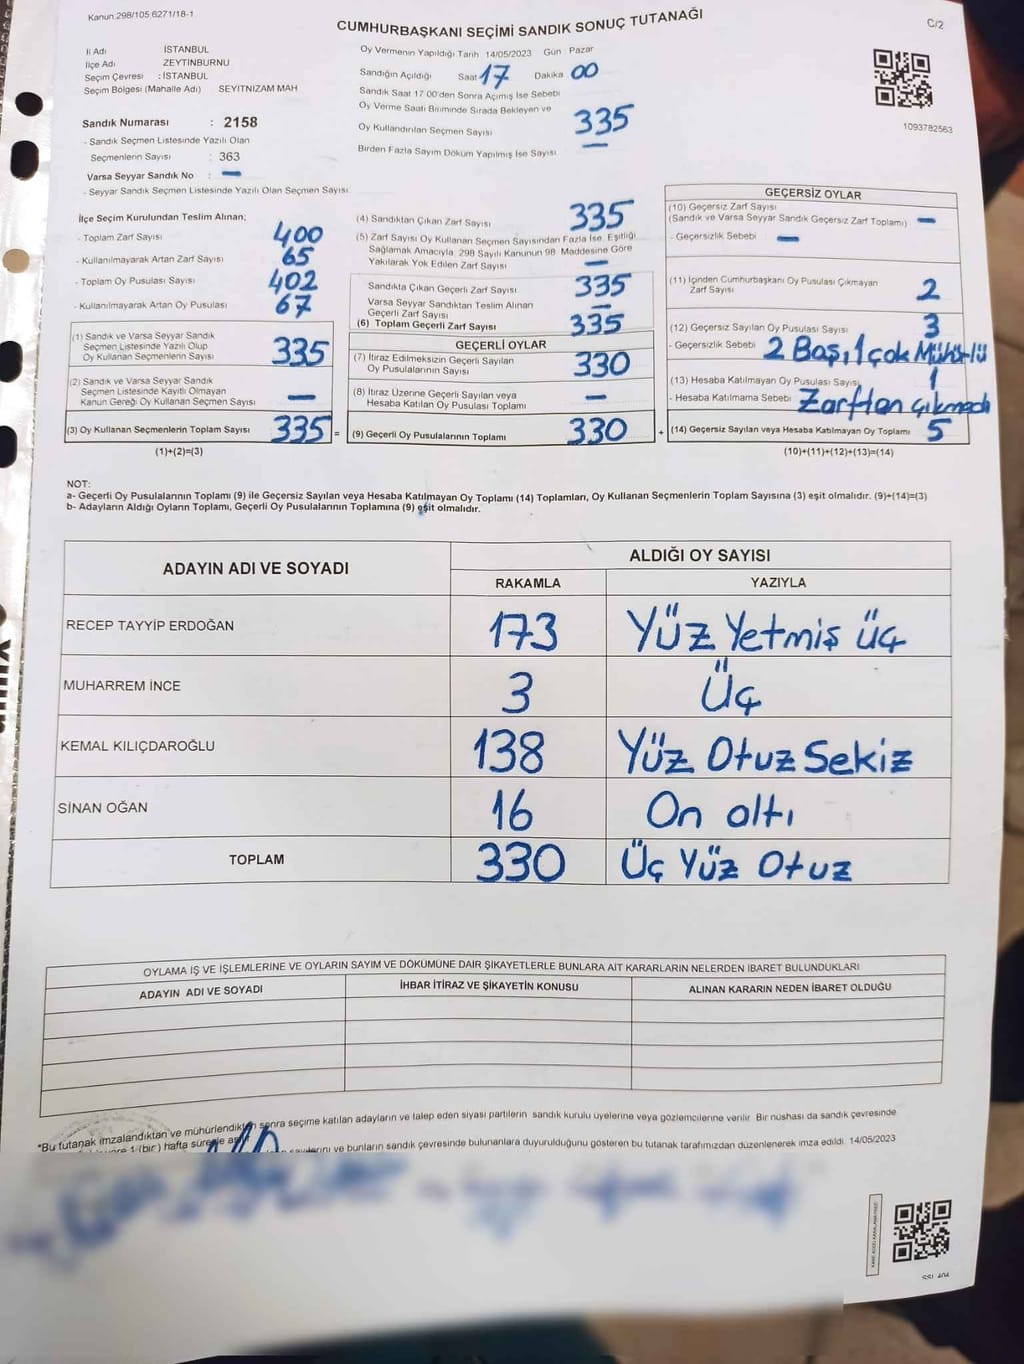 Kanun:298/105.6271/18-1
CUMHURBAŞKANI SEÇİMİ SANDIK SONUÇ TUTANAĞI
C/2
İl Adı İSTANBUL
İlçe Adı ZEYTİNBURNU
Seçim Çevresi : İSTANBUL
Seçim Bölgesi (Mahalle Adı) SEYİTNİZAM MAH
Sandık Numarası : 2158
- Sandık Seçmen Listesinde Yazılı Olan
Seçmenlerin Sayısı : 363
Varsa Seyyar Sandık No : —
- Seyyar Sandık Seçmen Listesinde Yazılı Olan Seçmen Sayısı
Oy Vermenin Yapıldığı Tarih 14/05/2023 Gün Pazar
Sandığın Açıldığı Saat 17 Dakika 00
Sandık Saat 17 00'den Sonra Açılmış İse Sebebi
Oy Verme Saati Bitiminde Sırada Bekleyen ve
Oy Kullandırılan Seçmen Sayısı 335
Birden Fazla Sayım Döküm Yapılmış İse Sayısı —
1093782563
İlçe Seçim Kurulundan Teslim Alınan;
- Toplam Zarf Sayısı 400
- Kullanılmayarak Artan Zarf Sayısı 65
- Toplam Oy Pusulası Sayısı 402
- Kullanılmayarak Artan Oy Pusulası 67
(1) Sandık ve Varsa Seyyar Sandık
Seçmen Listesinde Yazılı Olup
Oy Kullanan Seçmenlerin Sayısı 335
(2) Sandık ve Varsa Seyyar Sandık
Seçmen Listesinde Kayıtlı Olmayan
Kanun Gereği Oy Kullanan Seçmen Sayısı —
(3) Oy Kullanan Seçmenlerin Toplam Sayısı 335 =
(1)+(2)=(3)
(4) Sandıktan Çıkan Zarf Sayısı 335
(5) Zarf Sayısı Oy Kullanan Seçmen Sayısından Fazla İse, Eşitliği
Sağlamak Amacıyla 298 Sayılı Kanunun 98 Maddesine Göre
Yakılarak Yok Edilen Zarf Sayısı —
Sandıkta Çıkan Geçerli Zarf Sayısı 335
Varsa Seyyar Sandıktan Teslim Alınan
Geçerli Zarf Sayısı —
(6) Toplam Geçerli Zarf Sayısı 335
GEÇERLİ OYLAR
(7) İtiraz Edilmeksizin Geçerli Sayılan
Oy Pusulalarının Sayısı 330
(8) İtiraz Üzerine Geçerli Sayılan veya
Hesaba Katılan Oy Pusulası Toplamı —
(9) Geçerli Oy Pusulalarının Toplamı 330 +
GEÇERSİZ OYLAR
(10) Geçersiz Zarf Sayısı
(Sandık ve Varsa Seyyar Sandık Geçersiz Zarf Toplamı) —
- Geçersizlik Sebebi —
(11) İçinden Cumhurbaşkanı Oy Pusulası Çıkmayan
Zarf Sayısı 2
(12) Geçersiz Sayılan Oy Pusulası Sayısı 3
- Geçersizlik Sebebi 2 Boş, 1 çok Mühürlü
(13) Hesaba Katılmayan Oy Pusulası Sayısı 1
- Hesaba Katılmama Sebebi Zarftan çıkmadı
(14) Geçersiz Sayılan veya Hesaba Katılmayan Oy Toplamı 5
(10)+(11)+(12)+(13)=(14)
NOT:
a- Geçerli Oy Pusulalarının Toplamı (9) ile Geçersiz Sayılan veya Hesaba Katılmayan Oy Toplamı (14) Toplamları, Oy Kullanan Seçmenlerin Toplam Sayısına (3) eşit olmalıdır. (9)+(14)=(3)
b- Adayların Aldığı Oyların Toplamı, Geçerli Oy Pusulalarının Toplamına (9) eşit olmalıdır.
ADAYIN ADI VE SOYADI
ALDIĞI OY SAYISI
RAKAMLA YAZIYLA
RECEP TAYYİP ERDOĞAN 173 Yüz Yetmiş üç
MUHARREM İNCE 3 Üç
KEMAL KILIÇDAROĞLU 138 Yüz Otuz Sekiz
SİNAN OĞAN 16 On altı
TOPLAM 330 Üç Yüz Otuz
OYLAMA İŞ VE İŞLEMLERİNE VE OYLARIN SAYIM VE DÖKÜMÜNE DAİR ŞİKAYETLERLE BUNLARA AİT KARARLARIN NELERDEN İBARET BULUNDUKLARI
ADAYIN ADI VE SOYADI İHBAR İTİRAZ VE ŞİKAYETİN KONUSU ALINAN KARARIN NEDEN İBARET OLDUĞU
*Bu tutanak imzalandıktan ve mühürlendikten sonra seçime katılan adayların ve talep eden siyasi partilerin sandık kurulu üyelerine veya gözlemcilerine verilir. Bir nüshası da sandık çevresinde
1 (bir) hafta süreyle asılır.
ve bunların sandık çevresinde bulunanlara duyurulduğunu gösteren bu tutanak tarafımızdan düzenlenerek imza edildi. 14/05/2023